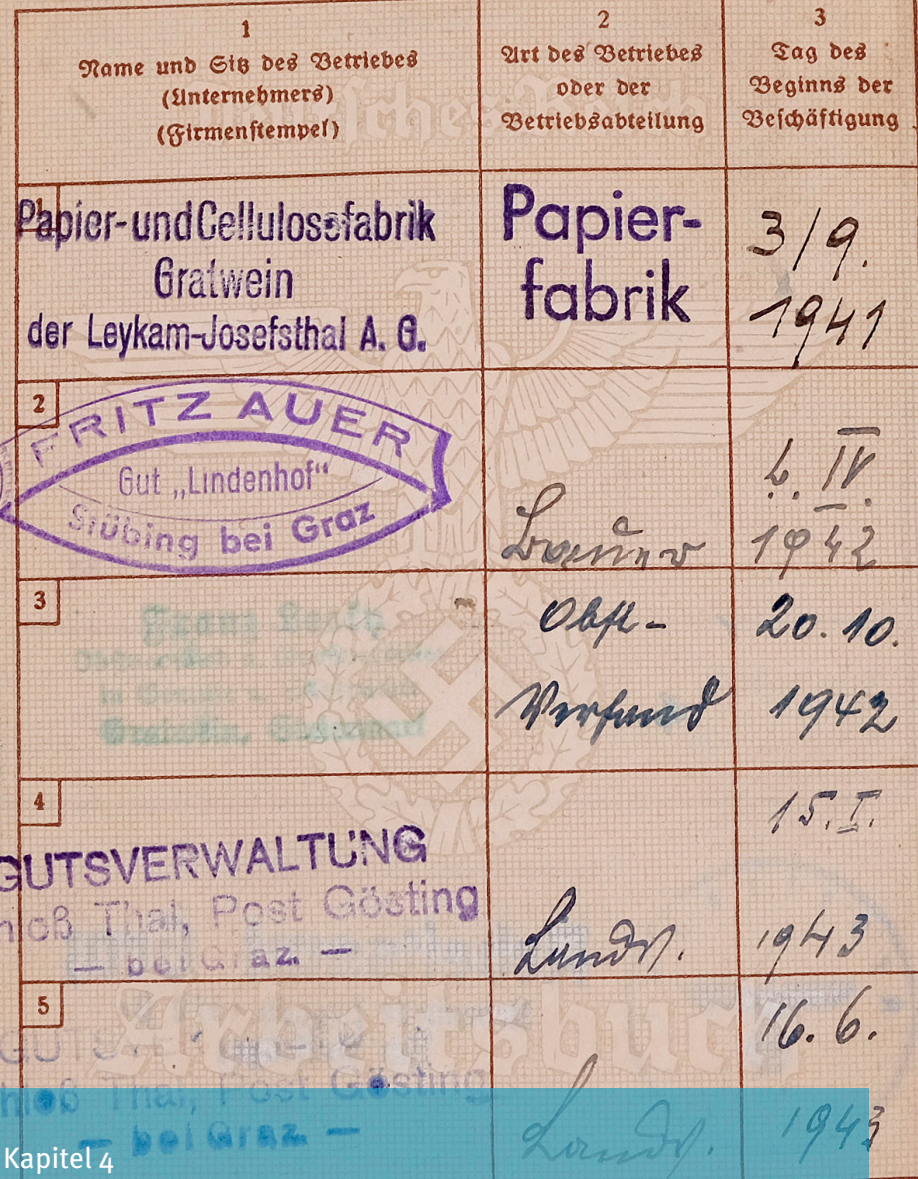 1
Name und Sitz des Betriebes
(Unternehmers)
(Firmenstempel)
2
Art des Betriebes
oder der
Betriebsabteilung
3
Tag des
Beginns der
Beschäftigung
Papier- und Cellulosefabrik
Gratwein
der Leykam-Josefsthal A. G.
Papier-
fabrik
3/9.
1941
2
FRITZ AUER
Gut „Lindenhof“
Stübing bei Graz
Bauer
IV.
1942
3
Obst-
Versand
20. 10.
1942
4
GUTSVERWALTUNG
hloß Thal, Post Gösting
— bei Graz. —
Landw.
15. I.
1943
5
hloß Thal, Post Gösting
— bei Graz. —
Landw.
16. 6.
1943
Arbeitsbuch
Kapitel 4